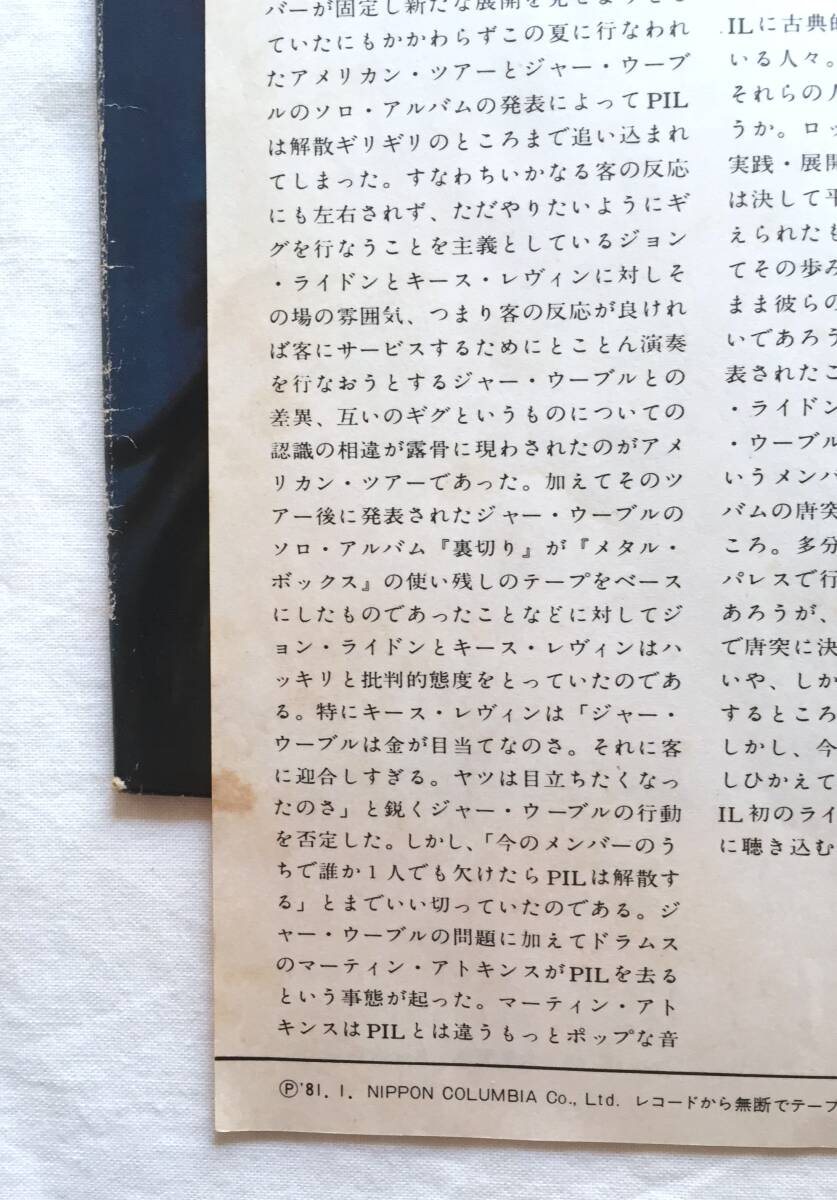 バーが固定し新たな展開を見せようとし
ていたにもかかわらずこの夏に行なわれ
たアメリカン・ツアーとジャー・ウーブ
ルのソロ・アルバムの発表によってPIL
は解散ギリギリのところまで追い込まれ
てしまった。すなわちいかなる客の反応
にも左右されず、ただやりたいようにギ
グを行なうことを主義としているジョン
・ライドンとキース・レヴィンに対しそ
の場の雰囲気、つまり客の反応が良けれ
ば客にサービスするためにとことん演奏
を行なおうとするジャー・ウーブルとの
差異、互いのギグというものについての
認識の相違が露骨に現わされたのがアメ
リカン・ツアーであった。加えてそのツ
アー後に発表されたジャー・ウーブルの
ソロ・アルバム『裏切り』が『メタル・
ボックス』の使い残しのテープをベース
にしたものであったことなどに対してジ
ョン・ライドンとキース・レヴィンはハ
ッキリと批判的態度をとっていたのであ
る。特にキース・レヴィンは「ジャー・
ウーブルは金が目当てなのさ。それに客
に迎合しすぎる。ヤツは目立ちたくなっ
たのさ」と鋭くジャー・ウーブルの行動
を否定した。しかし、「今のメンバーのう
ちで誰か1人でも欠けたらPILは解散す
る」とまでいい切っていたのである。ジ
ャー・ウーブルの問題に加えてドラムス
のマーティン・アトキンスがPILを去る
という事態が起った。マーティン・アト
キンスはPILとは違うもっとポップな音
ILに古典的
いる人々。
それらの人
うか。ロッ
実践・展開
は決して平
えられたも
てその歩み
まま彼らの
いであろう
表されたこ
・ライドン
・ウーブル
いうメンバ
バムの唐突
ころ。多分
パレスで行
あろうが、
で唐突に決
いや、しか
するところ
しかし、今
しひかえて
IL初のライ
に聴き込む
Ⓟ'81. 1. NIPPON COLUMBIA Co., Ltd. レコードから無断でテープ